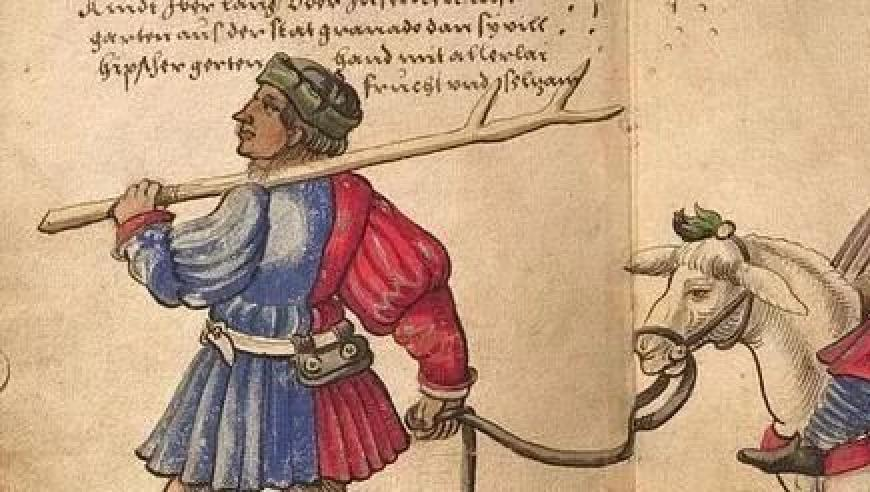 Kindt Iber land oder
garten aus der stat granado dan sy vill
hipscher gerten hand mit allerlai
frucht vnd selzam